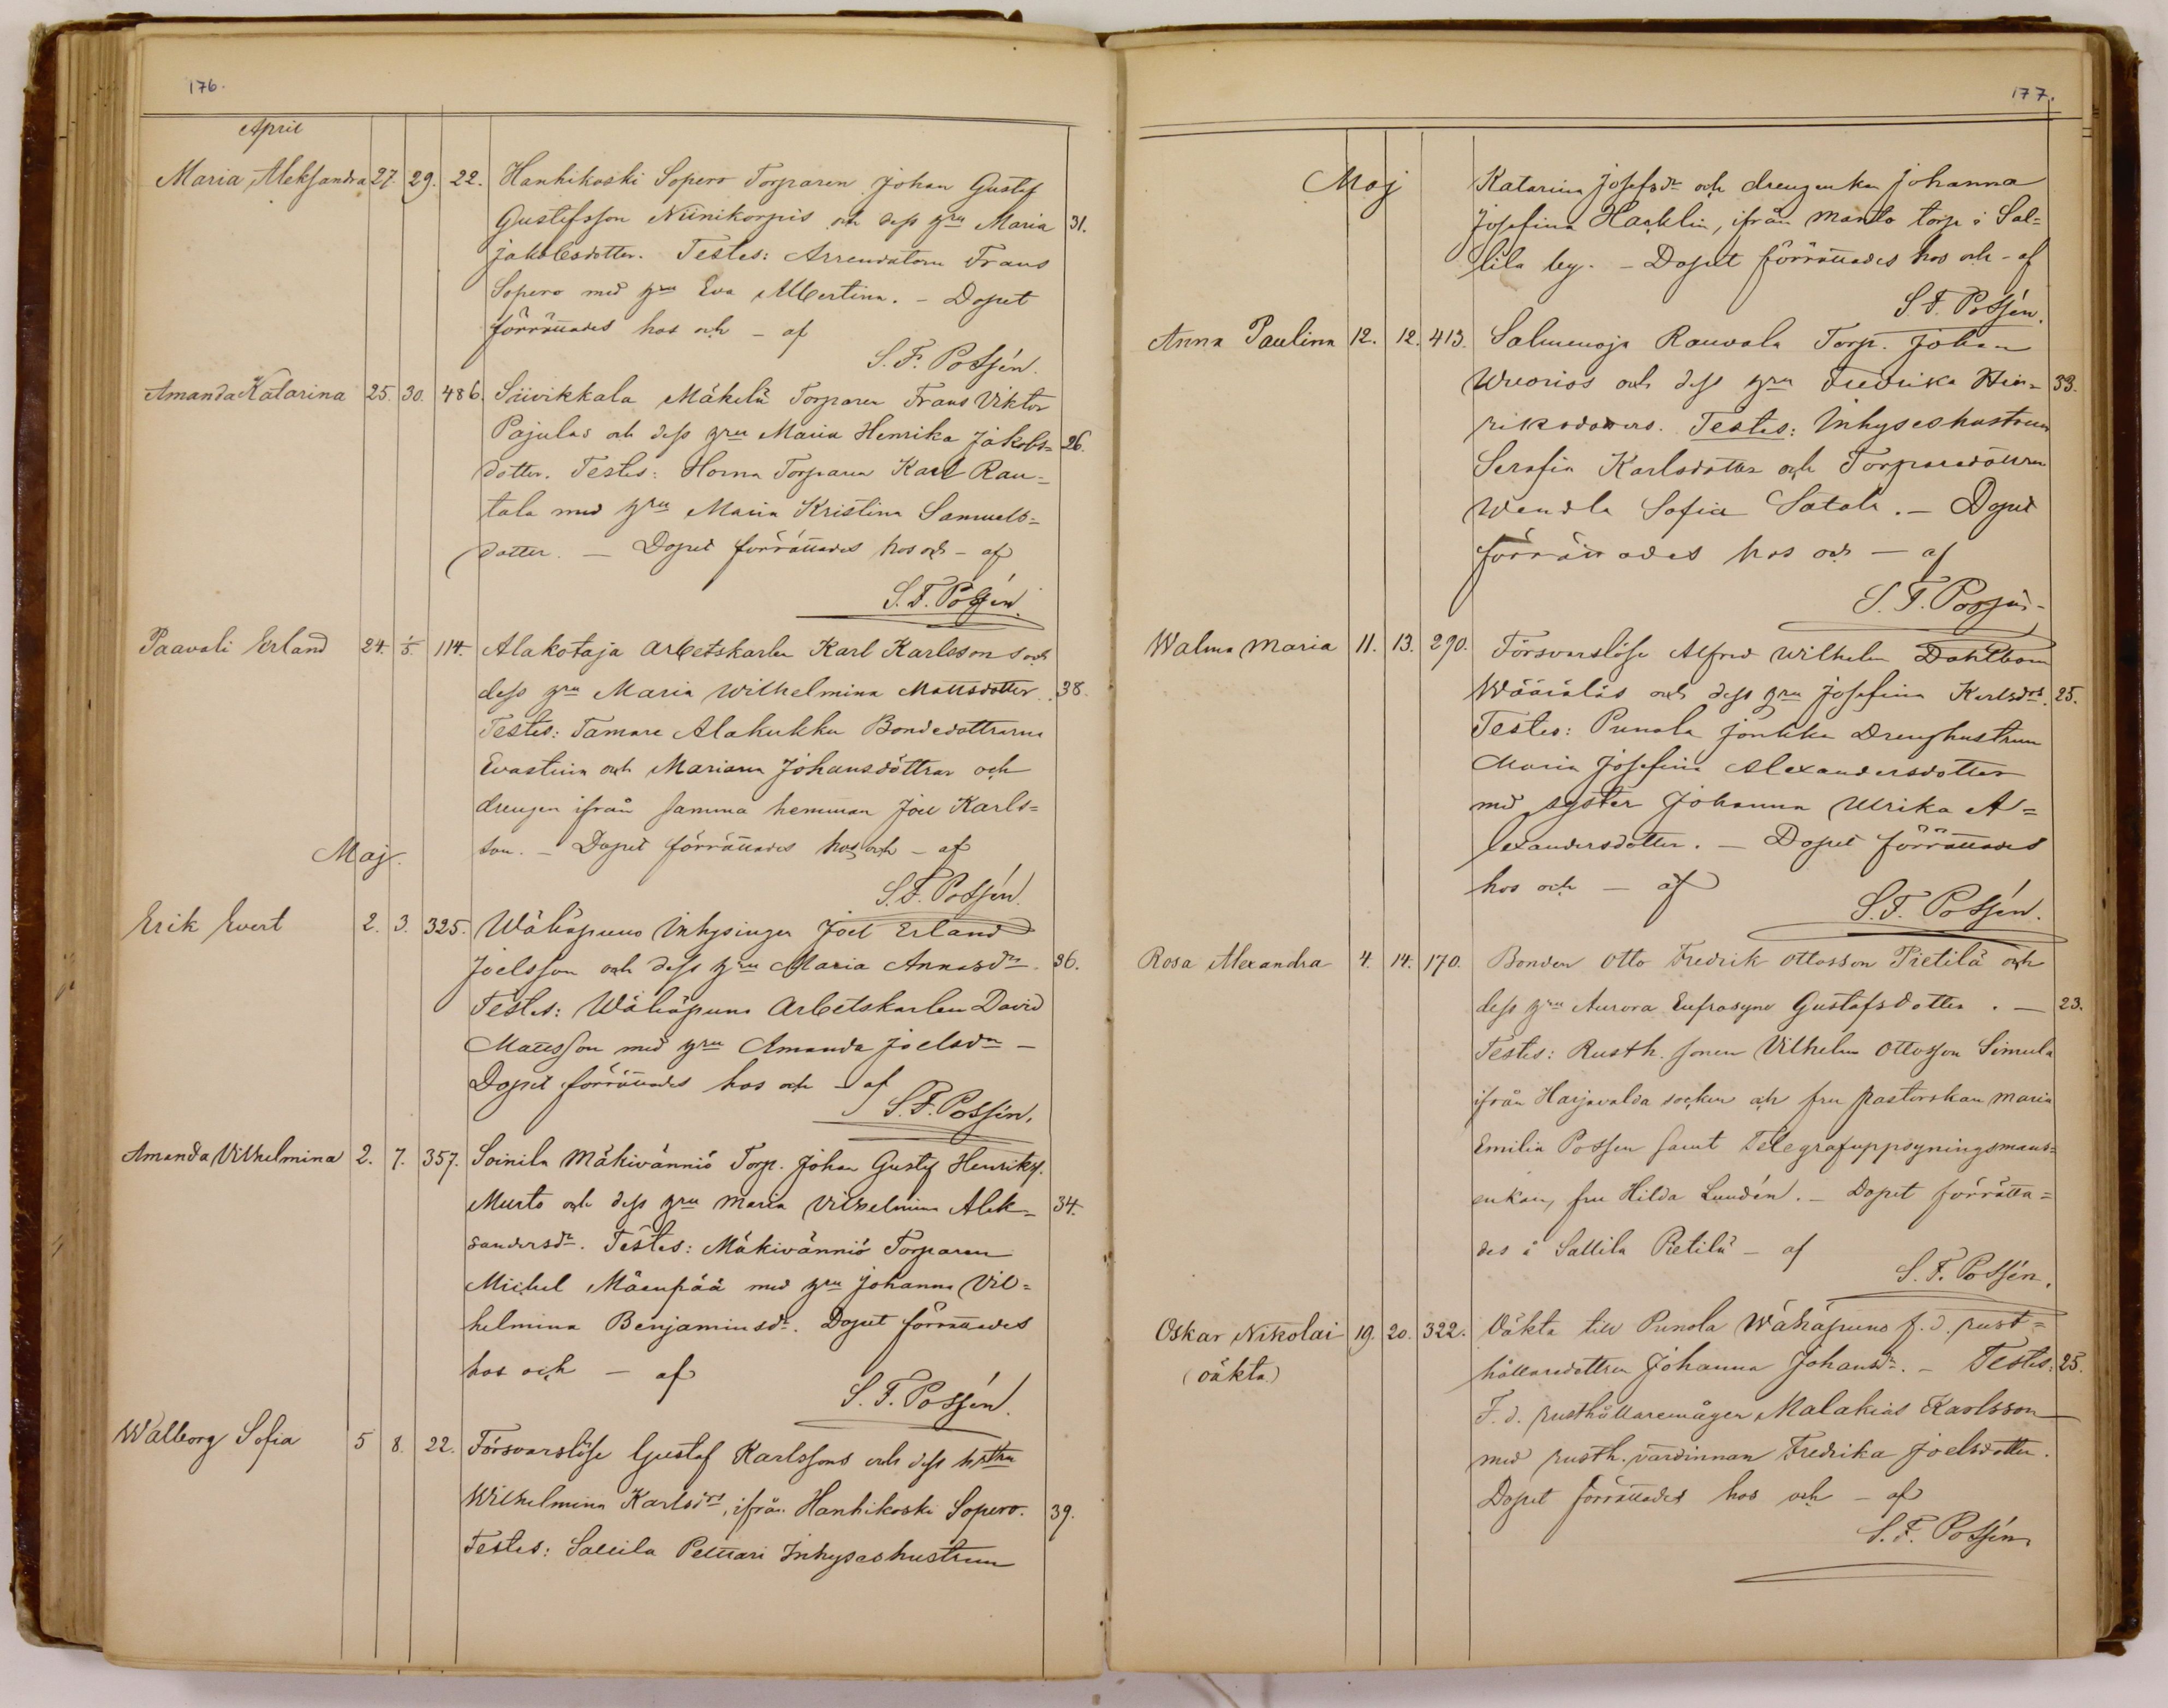 176.
April
Maria Aleksandra 27. 29. 22. Hanhikoski Sopero Torparen Johan Gustef
Gustefsson Niinikorpis och dess hru Maria 31.
Jakobsdotter. Testes: Arrendatorn Frans
Sopero med hru Eva Albertina. – Dopet
förrättades hos och – af
S. F. Possén.
Amanda Katarina 25. 30. 486. Säivikkala Mäkelä Torparen Frans Viktor
Pajulas och dess hru Maria Henrika Jakobs= 26.
dotter. Testes: Horna Torparen Karl Rau=
tala med hru Maria Kristina Samuels=
dotter. — Dopet förrättades hos och – af
S. F. Possén.
Paavali Erland 24. 1/5. 114. Alakotaja Arbetskarlen Karl Karlssons och
dess hru Maria Wilhelmina Mattsdotter. 38.
Testes: Tamare Alakukku Bondedöttrarna
Evastina och Mariana Johansdöttrar och
drengen ifrån samma hemman Joel Karls=
son. – Dopet förrättades hos och – af
S. F. Possén.
Maj.
Erik Evert 2. 3. 325. Wähäpuno Inhysingen Joel Erland
Joelsson och dess hru Maria Annasdr. 36.
Testes: Wähäpuno Arbetskarlen David
Mattsson med hru Amanda Joelsdr –
Dopet förrättades hos och – af
S. F. Possén.
Amanda Vilhelmina 2. 7. 357. Soinila Mäkivänniö Torp. Johan Gustf Henrikss.
Murto och dess hru Maria Vilhelmina Alek= 34.
sandersdr. Testes: Mäkivänniö Torparen
Mickel Mäenpää med hru Johanna Vil=
helmina Benjaminsdr. Dopet förrättades
hos och – af
S. F. Possén.
Walborg Sofia 5 8. 22. Försvarslöse Gustaf Karlssons och dess hstru
Wilhelmina Karlsdrs, ifrån Hanhikoski Sopero. 39.
Testes: Sallila Pettari Inhyseshustrun
177.
Maj Katarina Josefsdr och drengenkan Johanna
Josefina Hacklin, ifrån Manto torp i Sal=
lila by. – Dopet förrättades hos och – af
S. F. Possén.
Anna Paulina 12. 12. 413. Salmenoja Rauvola Torp. Johan
Wuorios och dess hru Fredrika Hin= 33.
riksdotters. Testes: Inhyseshustrun
Serafia Karlsdotter och Torparedottren
Wendla Sofia Satala. – Dopet
förrättades hos och – af
S. F. Possén.
Walma Maria 11. 13. 290. Försvarslöse Alfred Wilhelm Dahlbom
Wääräläs och dess hru Josefina Karlsdrs. 25.
Testes: Punola Jönkka Drenghustrun
Maria Josefina Alexandersdotter
med syster Johanna Ulrika A=
lexandersdotter. – Dopet förrättades
hos och – af
S. F. Possén.
Rosa Alexandra 4. 14. 170. Bonden Otto Fredrik Ottosson Pietilä och
dess hru Aurora Eufrosyne Gustafsdotter. — 23.
Testes: Rusth. sonen Vilhelm Ottosson Simula
ifrån Harjavalda socken och fru Pastorskan Maria
Emilia Possen samt Telegrafuppsyningsmans=
enkan, fru Hilda Lundén. – Dopet förrätta=
des i Sallila Pietilä – af
S. F. Possén.
Oskar Nikolai 19. 20. 322. Oäkta till Punola Wähäpuno f. d. rust=
(oäkta) hållaredottren Johanna Johansdr. – Testes: 25.
F. d. rusthållaremågen Malakias Karlsson
med rusth. värdinnan Fredrika Joelsdotter.
Dopet förrättades hos och – af
S. F. Possén